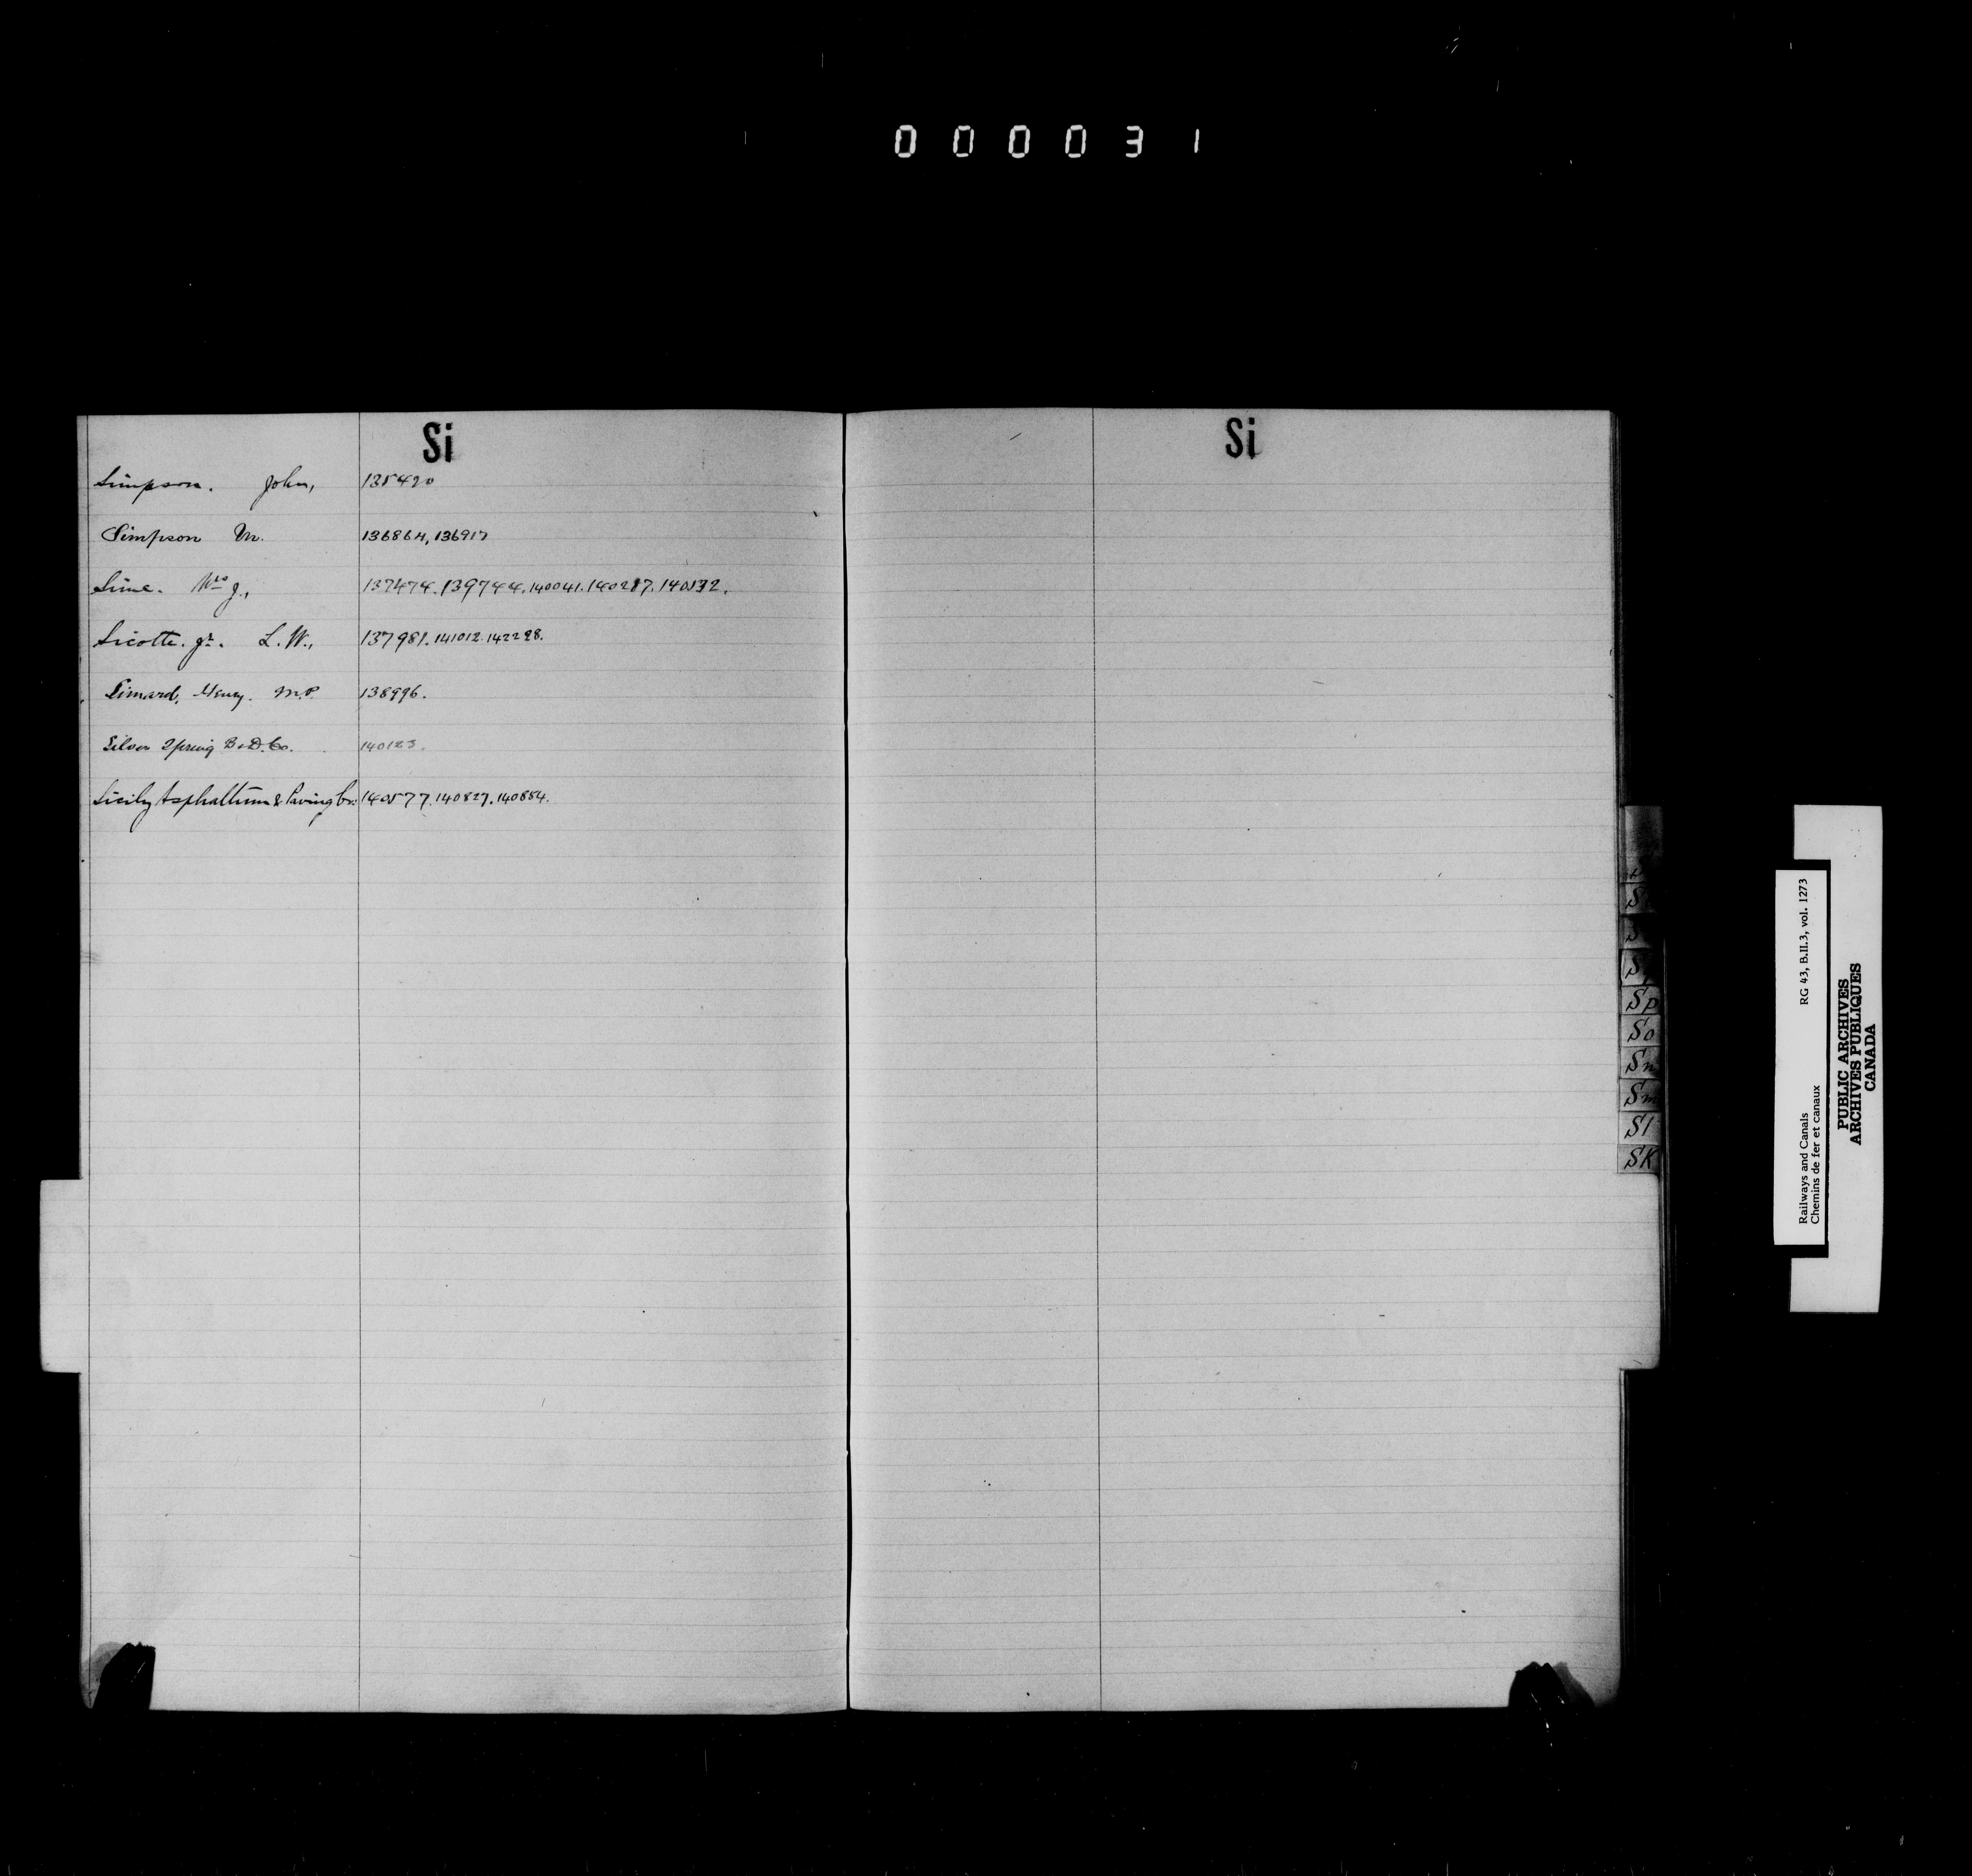 000031
Si
Simpson. John, 135420
Simpson M. 136864, 136917
Sime. Mrs J., 137474. 139744. 140041. 140287. 140532.
Sicotte. Jr. L. W., 137981. 141012. 142298.
Simard, Henry. M.P. 138996.
Silver Spring B. & D. Co. 140123.
Sicily Asphaltum & Paving Co: 140577. 140827. 140884.
Si
Sp
So
Sn
Sm
Sl
SK
Railways and Canals RG 43, B.II.3, vol. 1273
Chemins de fer et canaux
PUBLIC ARCHIVES
ARCHIVES PUBLIQUES
CANADA